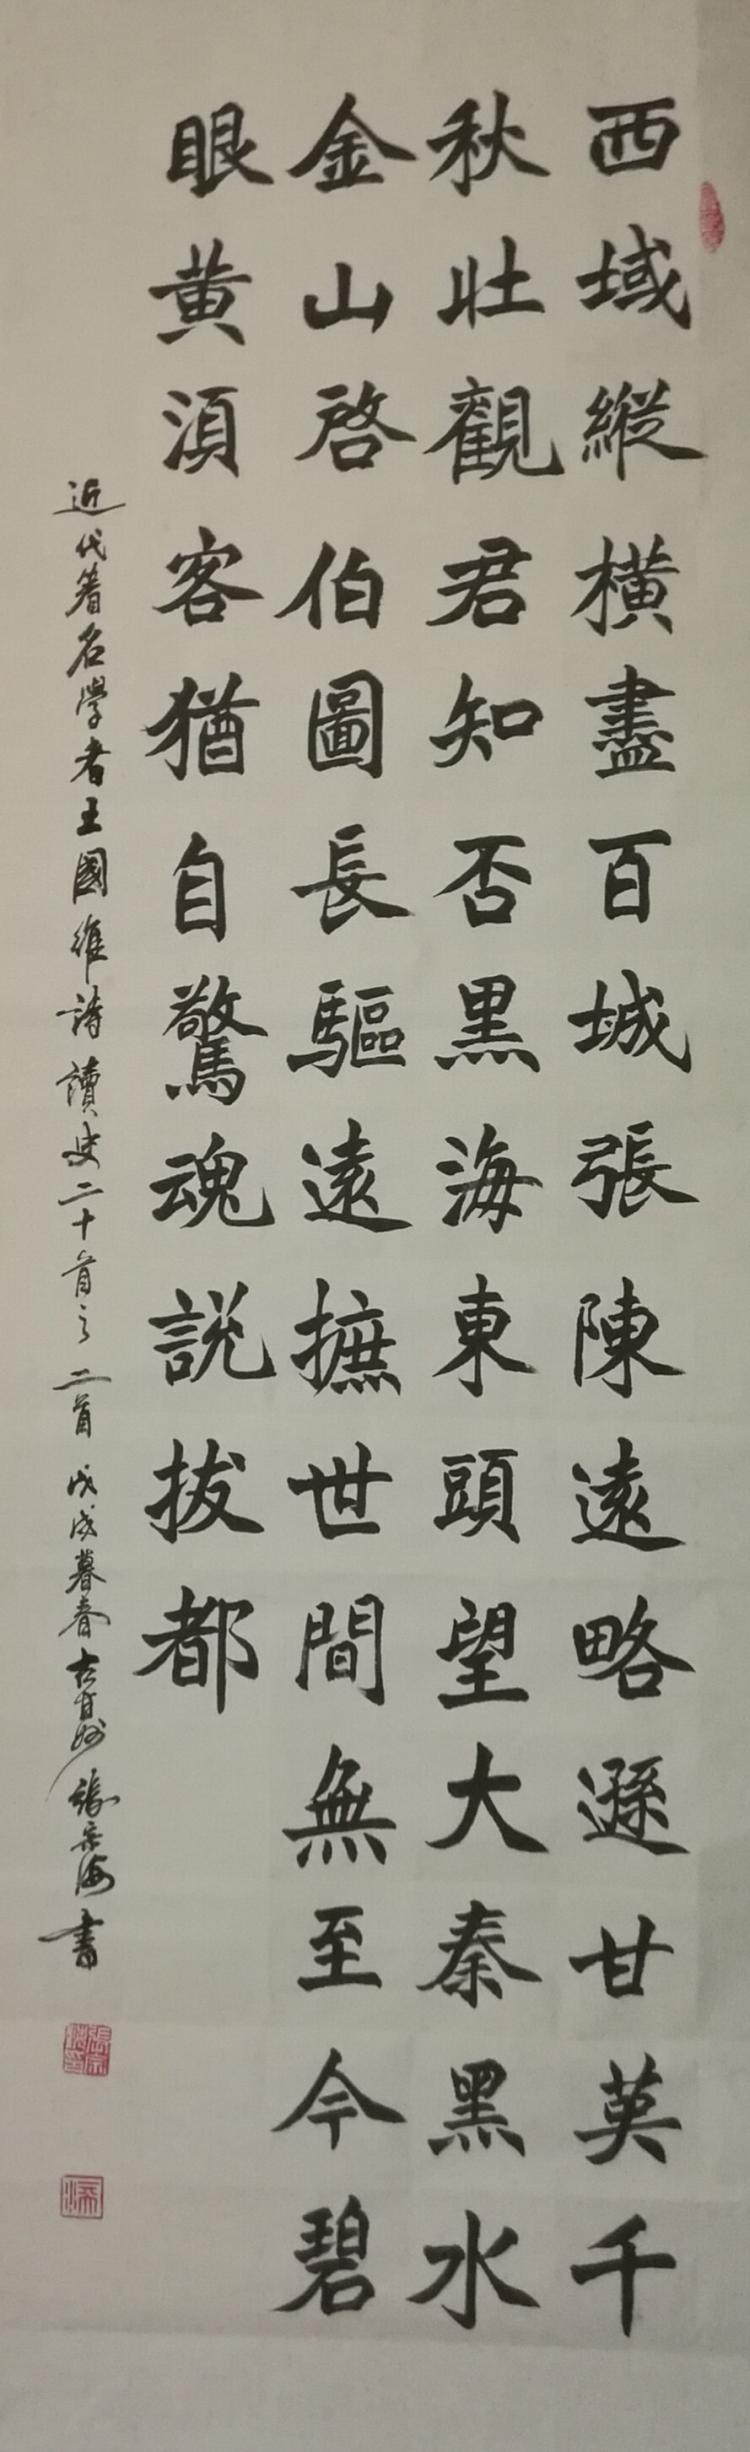 西域縱橫盡百城張陳遠略遜甘英千
秋壯觀君知否黑海東頭望大秦黑水
金山啓伯圖長驅遠摭世間無至今碧
眼黄湏客猶自驚魂説拔都
近代着名學者王國維詩讀史二十首之二首戊戌暮春古甘州張宗海書